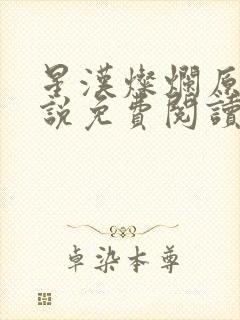 星漢燦爛原
說免費閱讀
卓染本尊